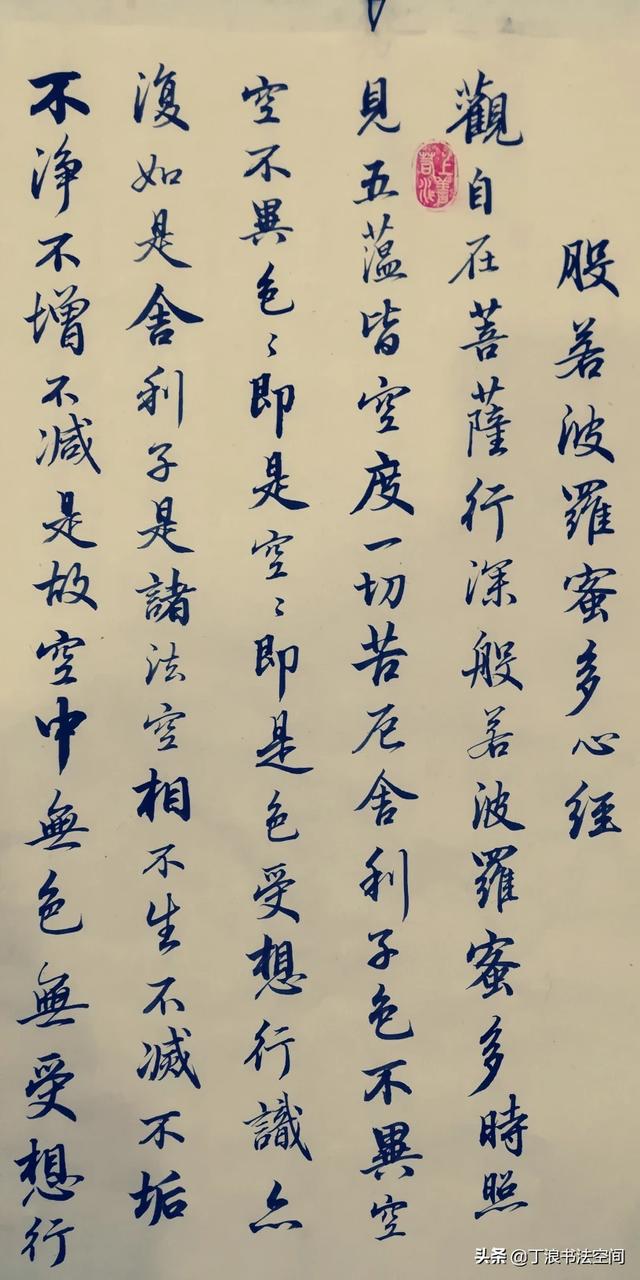 般若波羅蜜多心経
觀自在菩薩行深般若波羅蜜多時照
見五蕰皆空度一切苦厄舍利子色不異空
空不異色〻即是空〻即是色受想行識亦
復如是舍利子是諸法空相不生不滅不垢
不淨不增不減是故空中無色無受想行
上善若水
头条 @丁浪书法空间